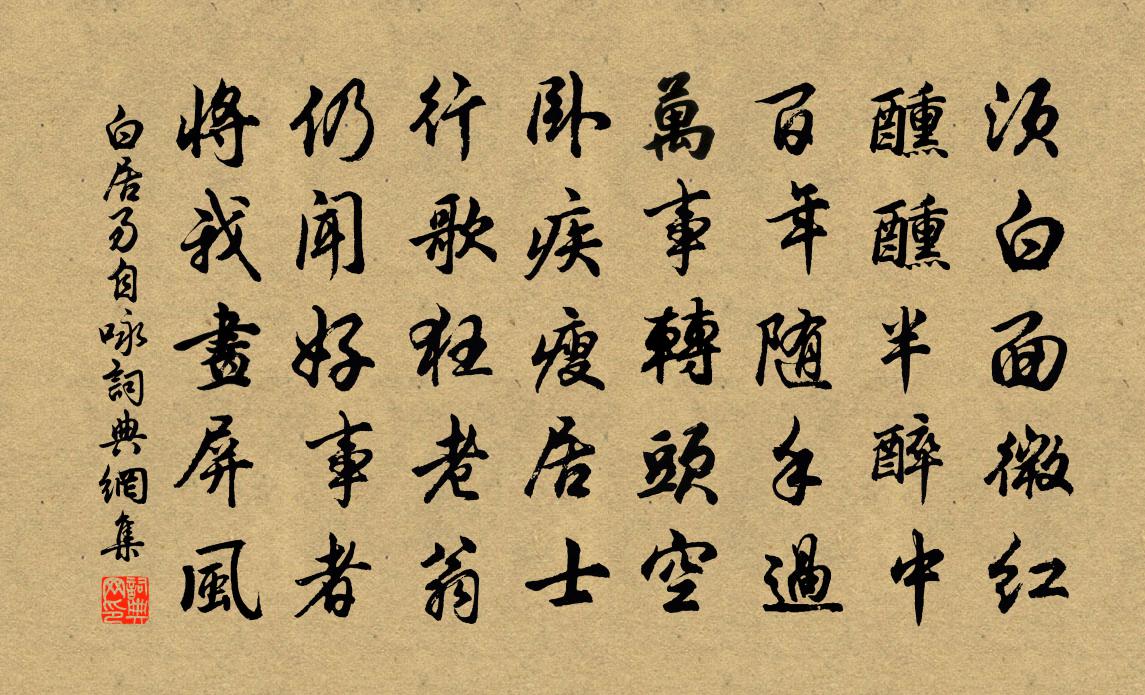 須白面微紅
醺醺半醉中
百年隨手過
萬事轉頭空
臥疾瘦居士
行歌狂老翁
仍聞好事者
將我畫屏風
白居易自咏詞典網集
詞典网印